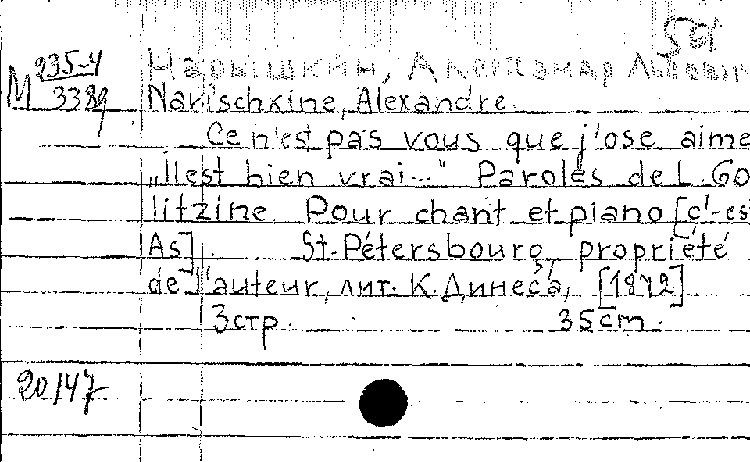 Нарышкин, Александр Львович
М 235-4
3389
Narischkine, Alexandre.
Ce n'est pas vous que j'ose aime
„Il est bien vrai..." Paroles de L. Go
litzine. Pour chant et piano [c'-es
As] St.-Pétersbourg, propriété
de l'auteur, лит. К. Динеса, [1872]
3 стр. 35 cm.
20/47